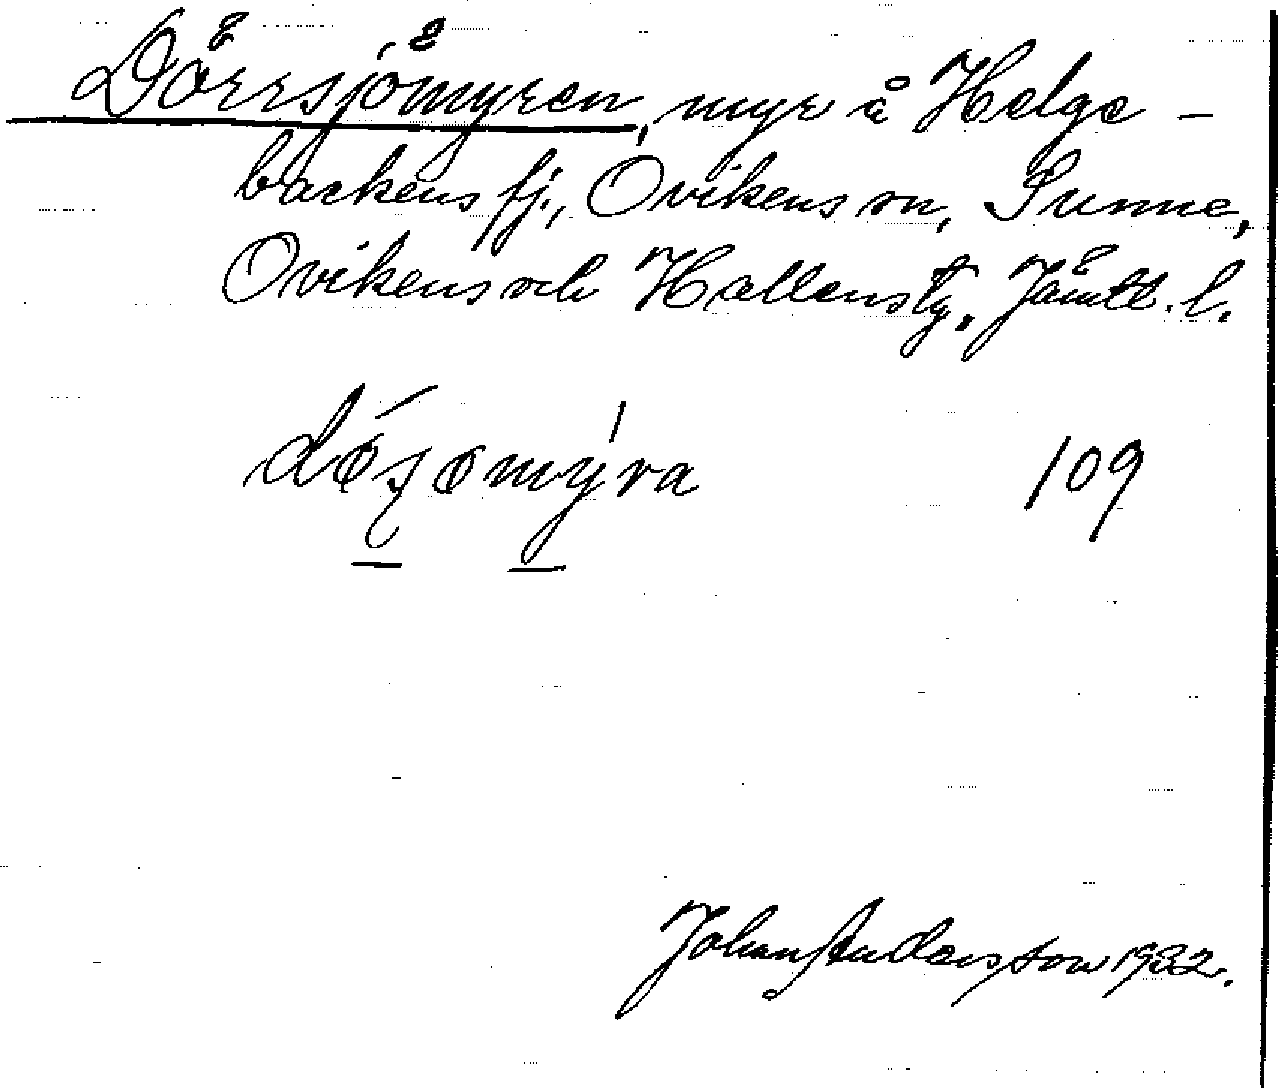 Dörrsjömyren, myr å Helge-
backens fj., Ovikens sn, Sunne,
Ovikens och Hallens tg, Jämtl. l.
109
Johan Andersson 1932.